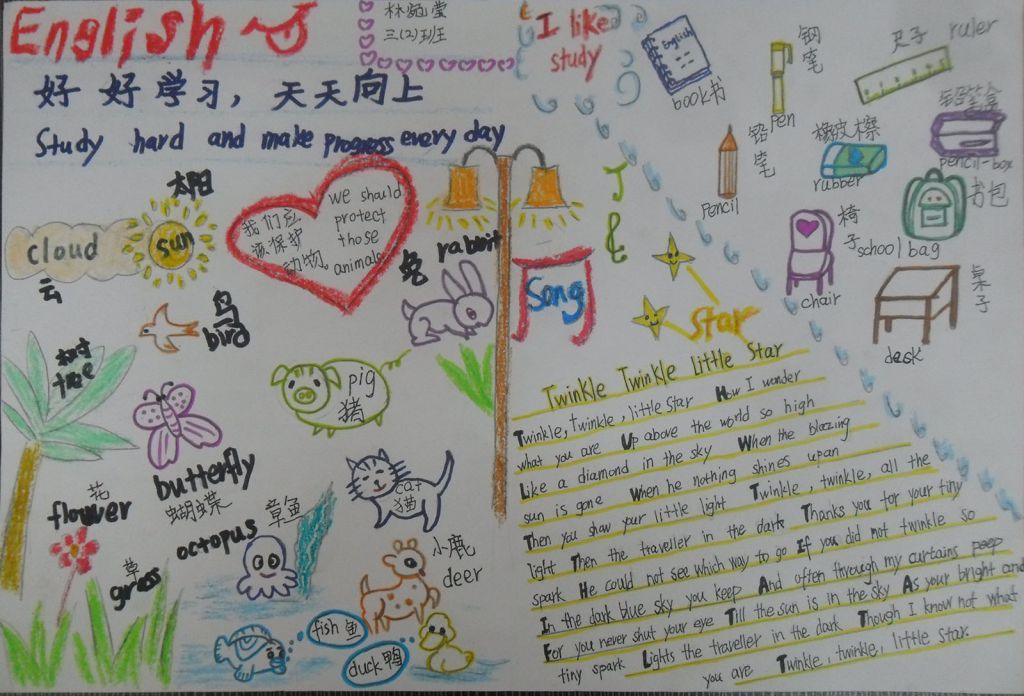 English
林宛莹
三(2)班
I like
study
好好学习，天天向上
Study hard and make progress every day
English
book书
钢笔
pen
尺子 ruler
铅笔
pencil
橡皮擦
rubber
铅笔盒
pencil-box
书包
school bag
椅子
chair
桌子
desk
太阳
sun
cloud
云
我们应
该保护
动物。
we should
protect
those
animals
兔 rabbit
鸟
bird
树
tree
pig
猪
butterfly
蝴蝶
花
flower
cat
猫
octopus 章鱼
草
grass
小鹿
deer
fish 鱼
duck 鸭
Song
Star
Twinkle Twinkle Little Star
Twinkle, twinkle, little star How I wonder
what you are Up above the world so high
Like a diamond in the sky When the blazing
sun is gone When he nothing shines upan
Then you show your little light Twinkle, twinkle, all the
light Then the traveller in the dark Thanks you for your tiny
spark He could not see which way to go If you did not twinkle so
In the dark blue sky you keep And often through my curtains peep
For you never shut your eye Till the sun is in the sky As your bright and
tiny spark Lights the traveller in the dark Though I know not what
you are Twinkle, twinkle, little star.